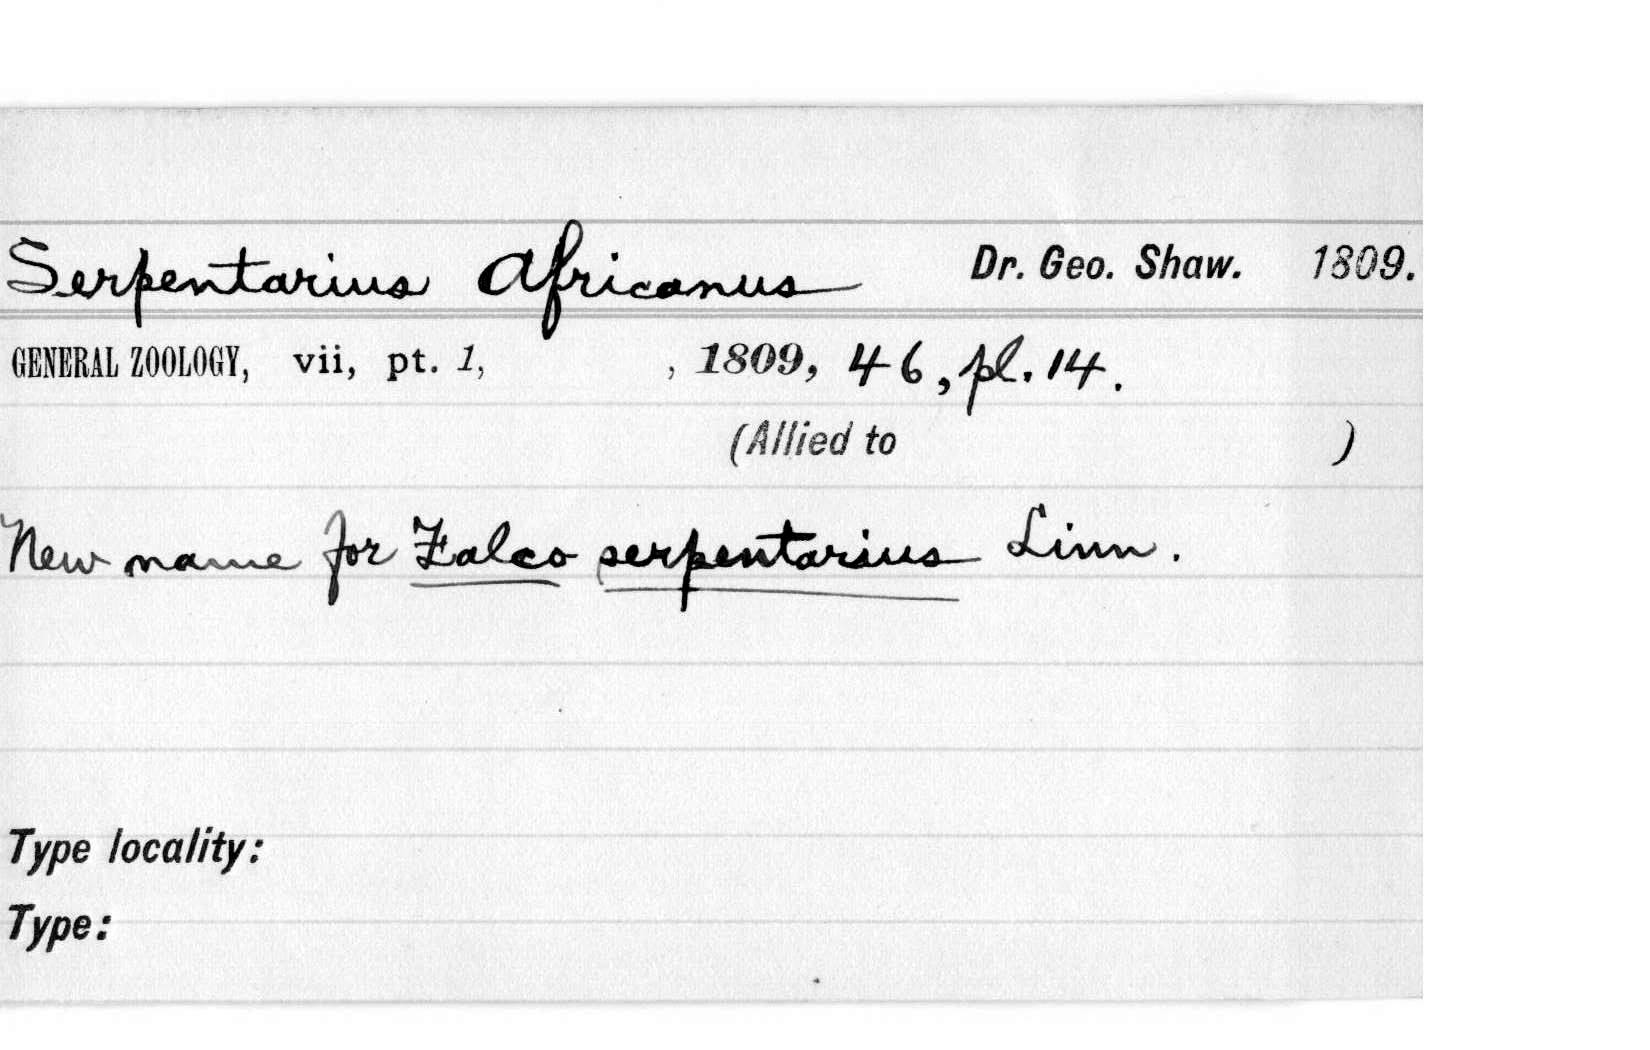 Serpentarius Africanus Dr. Geo. Shaw. 1809.
GENERAL ZOOLOGY, vii, pt. 1, , 1809, 46, pl. 14.
(Allied to )
New name for Falco serpentarius Linn.
Type locality:
Type: